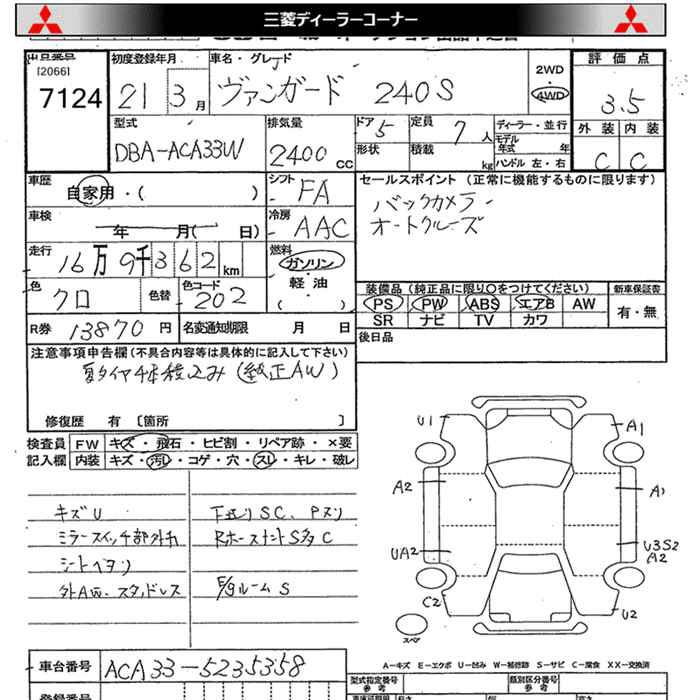 三菱ディーラーコーナー
出品番号 初度登録年月 車名・グレード 評価点
[2066]
7124 21 3月 ヴァンガード 240S 2WD 4WD 3.5
型式 排気量 ドア 5 定員 7人 ディーラー・並行 外装 内装
DBA-ACA33W 2400 CC 形状 積載 kg モデル年式 年 ハンドル 左・右 C C
車歴 シフト セールスポイント (正常に機能するものに限ります)
自家用・( ) FA バックカメラ
車検 冷房 オートクルーズ
年 月( 日) AAC
走行 燃料
16万9千362km ガソリン・軽油・( )
色 色替 色コード 装備品(純正品に限り○をつけてください) 新車保証書
クロ 202 PS PW ABS エアB AW 有・無
SR ナビ TV カワ
R券 13870円 名変通知期限 月 日 後日品
注意事項申告欄(不具合内容等は具体的に記入して下さい)
夏タイヤ4本積込み(純正AW)
修復歴 有 〔箇所 〕
検査員 FW キズ・飛石・ヒビ割・リペア跡・×要
記入欄 内装 キズ・汚レ・コゲ・穴・スレ・キレ・破レ
キズU
ミラースイッチ部外れ
シートヘタリ
外AW、スタッドレス
下廻りSC、Pスリ
E/gルームS
U1 A1
A2 A1
UA2 U3S2
A2
C2 U2
スペア
A―キズ E―エクボ U―凹み W―補修跡 S―サビ C―腐食 XX―交換済
車台番号 ACA33-5235358
型式指定番号 参考 類別区分番号 参考
登録番号